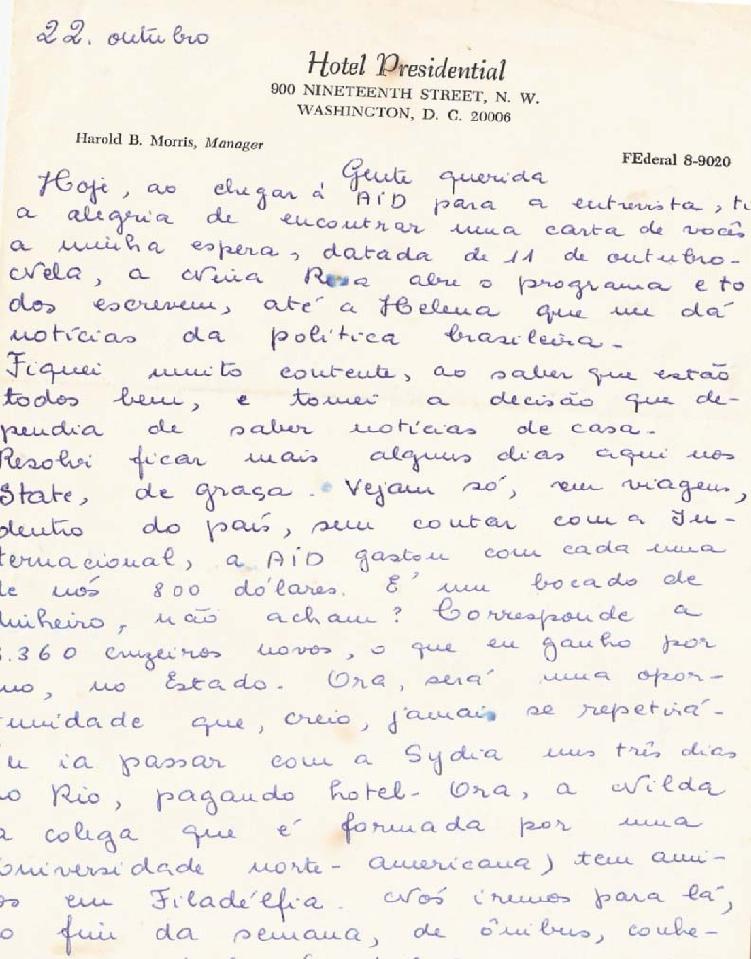 22. outubro
Hotel Presidential
900 NINETEENTH STREET, N. W.
WASHINGTON, D. C. 20006
Harold B. Morris, Manager
FEderal 8-9020
Gente querida
Hoje, ao chegar á AID para a entrevista, ti
a alegria de encontrar uma carta de vocês
a minha espera, datada de 11 de outubro-
Nela, a Nina Rosa abre o programa e to
dos escrevem, até a Helena que me dá
notícias da política brasileira-
Fiquei muito contente, ao saber que estão
todos bem, e tomei a decisão que de-
pendia de saber notícias de casa-
Resolvi ficar mais alguns dias aqui nos
State, de graça. Vejam só, em viagens,
dentro do país, sem contar com a In-
ternacional, a AID gastou com cada uma
de nós 800 dólares. É um bocado de
dinheiro, não acham? Corresponde a
.360 cruzeiros novos, o que eu ganho por
no, no Estado. Ora, será uma opor-
tunidade que, creio, jamais se repetirá-
u ia passar com a Sydia uns três dias
no Rio, pagando hotel- Ora, a Nilda
a colega que é formada por uma
Universidade norte-americana) tem ami-
os em Filadélfia. Nós iremos para lá,
o fim da semana, de ônibus, conhe-